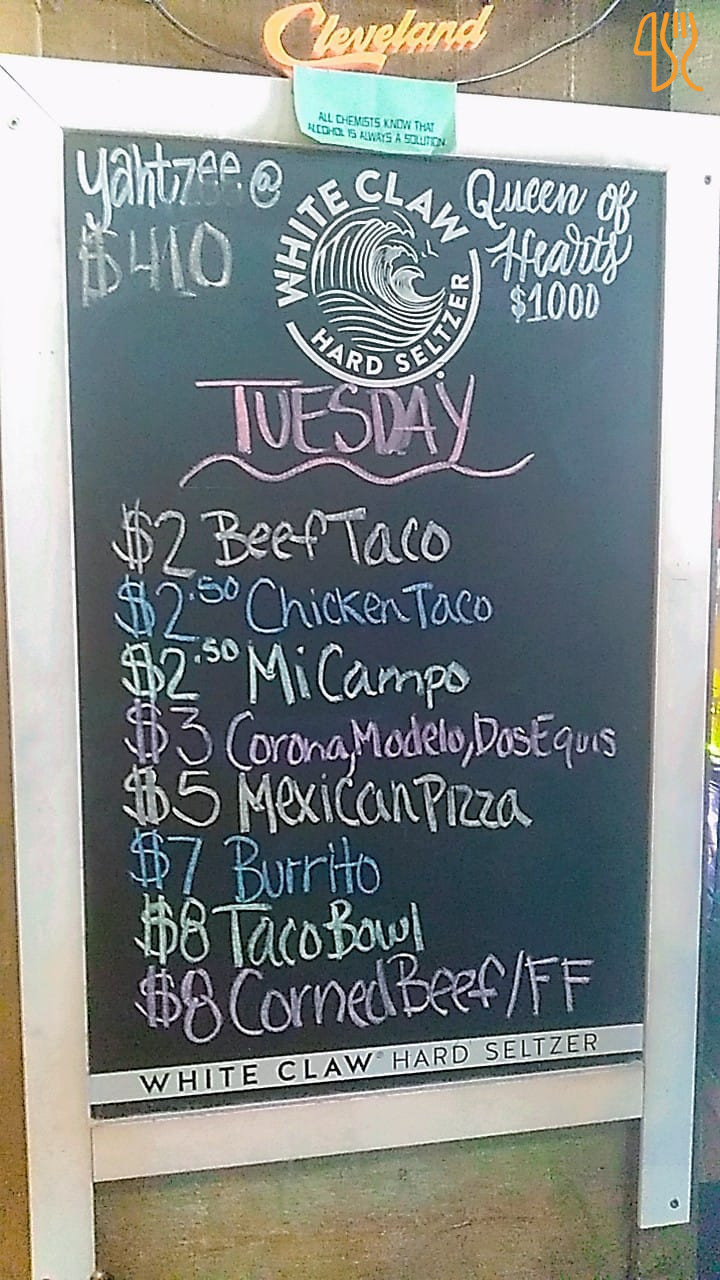 Cleveland
ALL CHEMISTS KNOW THAT
ALCOHOL IS ALWAYS A SOLUTION
Yahtzee @
$410
WHITE CLAW
HARD SELTZER
Queen of
Hearts
$1000
TUESDAY
$2 Beef Taco
$2.50 Chicken Taco
$2.50 Mi Campo
$3 Corona, Modelo, Dos Equis
$5 Mexican Pizza
$7 Burrito
$8 Taco Bowl
$8 Corned Beef/FF
WHITE CLAW® HARD SELTZER